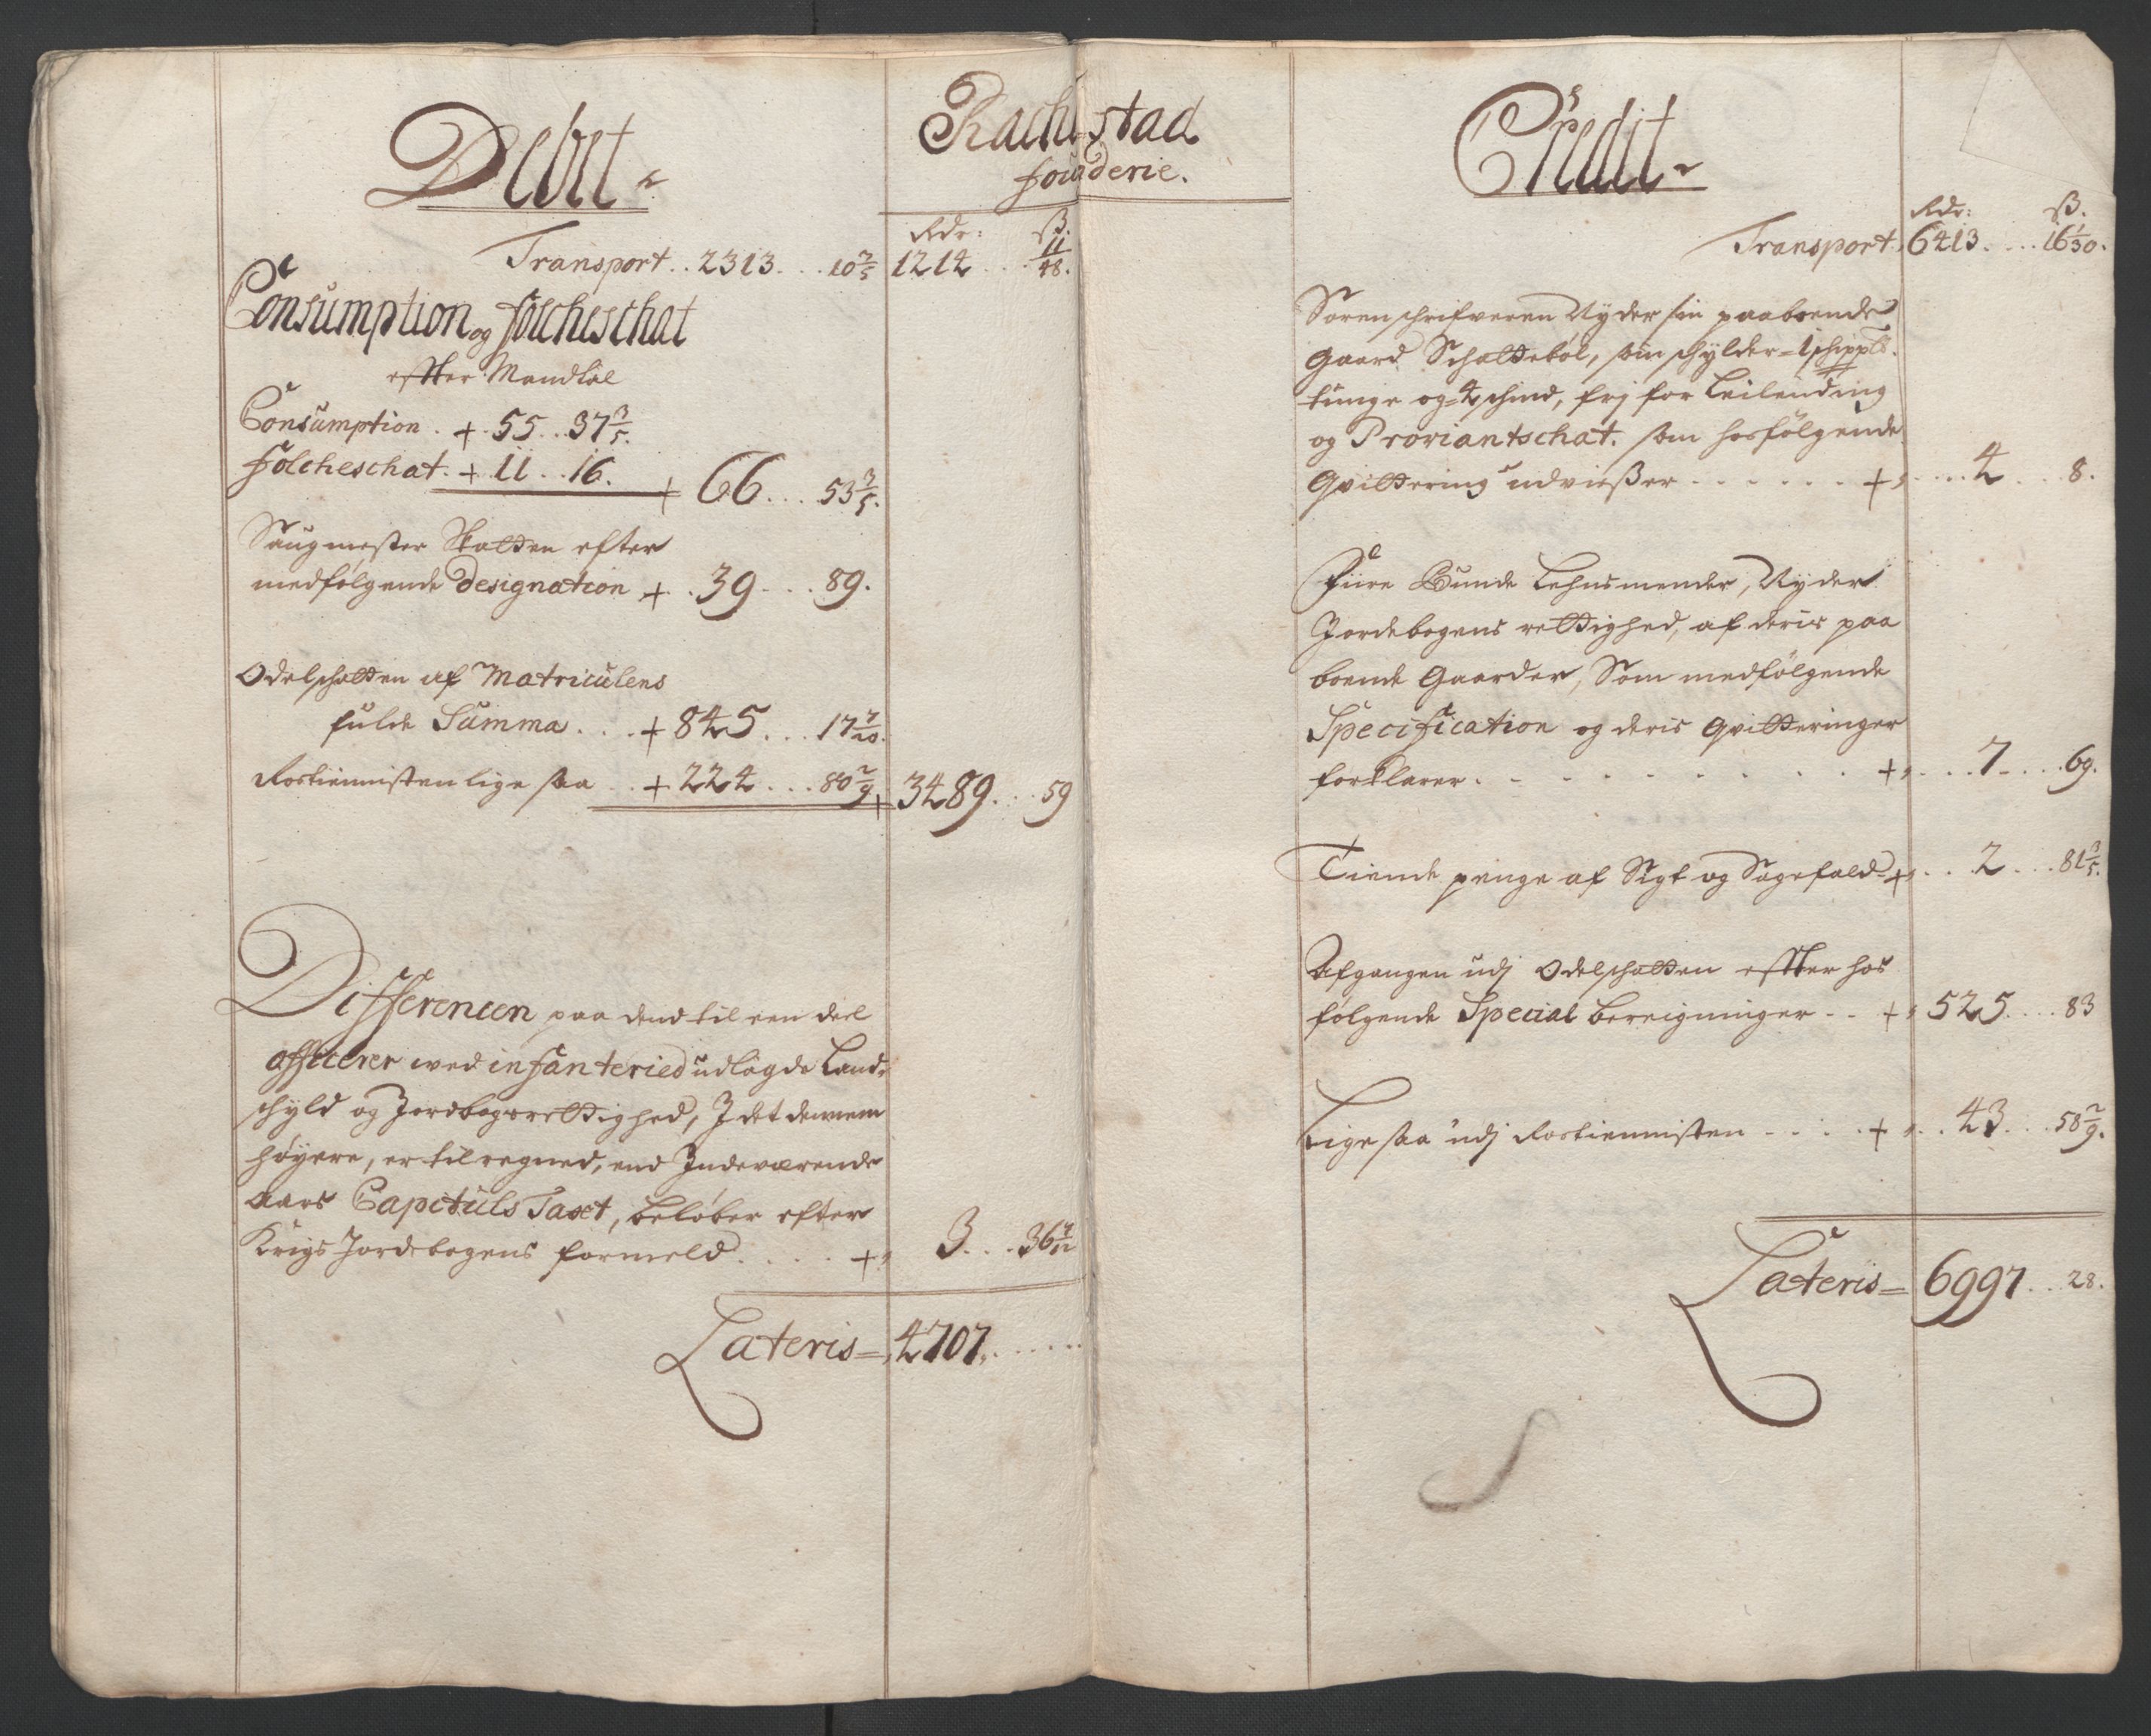 Debet
Rachestad
fouderie.
Rdr: ß.
Transport .. 2313 ... 10 2/5 1214 ... 11/48.
Consumption og folcheschat
effter Mandtal
Consumption . + . 55 .. 37 3/5.
folcheschat . + 11 .. 16. + 66 ... 53 3/5.
Saugmester Skatten efter
medfølgende Designation + . 39 ... 89.
Odelschatten af Matriculens
fulde Summa . . . + 845 ... 17 7/20.
Rostiennisten lige saa . . + 224 ... 80 2/9 + 3489 ... 59
Differencen paa dend til een deel
officerer wed infanteried udlagde Land-
schyld og Jordbogsrettighed, I det dennem
høyere, er tilregned, end Indeværende
aars Capituls Taxt, beløber efter
Krigs Jordebogens formeld . . . . + 3 ... 36 7/12
Lateris = 4707 .....
Credit
Rdr: ß.
Transport 6413 .... 16 1/30.
Sorenschrifveren Nyder sin paaboende
gaard Schattebøl, som schylder = 1 schippd
tunge og = 4 schind, frj for Leilending
og Proviantschat. som hosfølgende
Qvittering udvießer . . . . . . + .... 4 ... 8.
Fiire Bunde Lehnsmender, Nyder
Jordebogens rettighed, af deris paa
boende Gaarder, Som medfølgende
Specification og deris qvitteringer
forklarer . . . . . . . . . + .... 7 .... 69.
Tiende penge af Sigt og Sagefald + ... 2 ... 81 3/5.
Afgangen udj Odelschatten effter hos
følgende Special beregninger . . + 525 .... 83
Lige saa udj Rostiennisten . . . . . + ... 43 ... 58 2/9.
Lateris = 6997 ... 28.